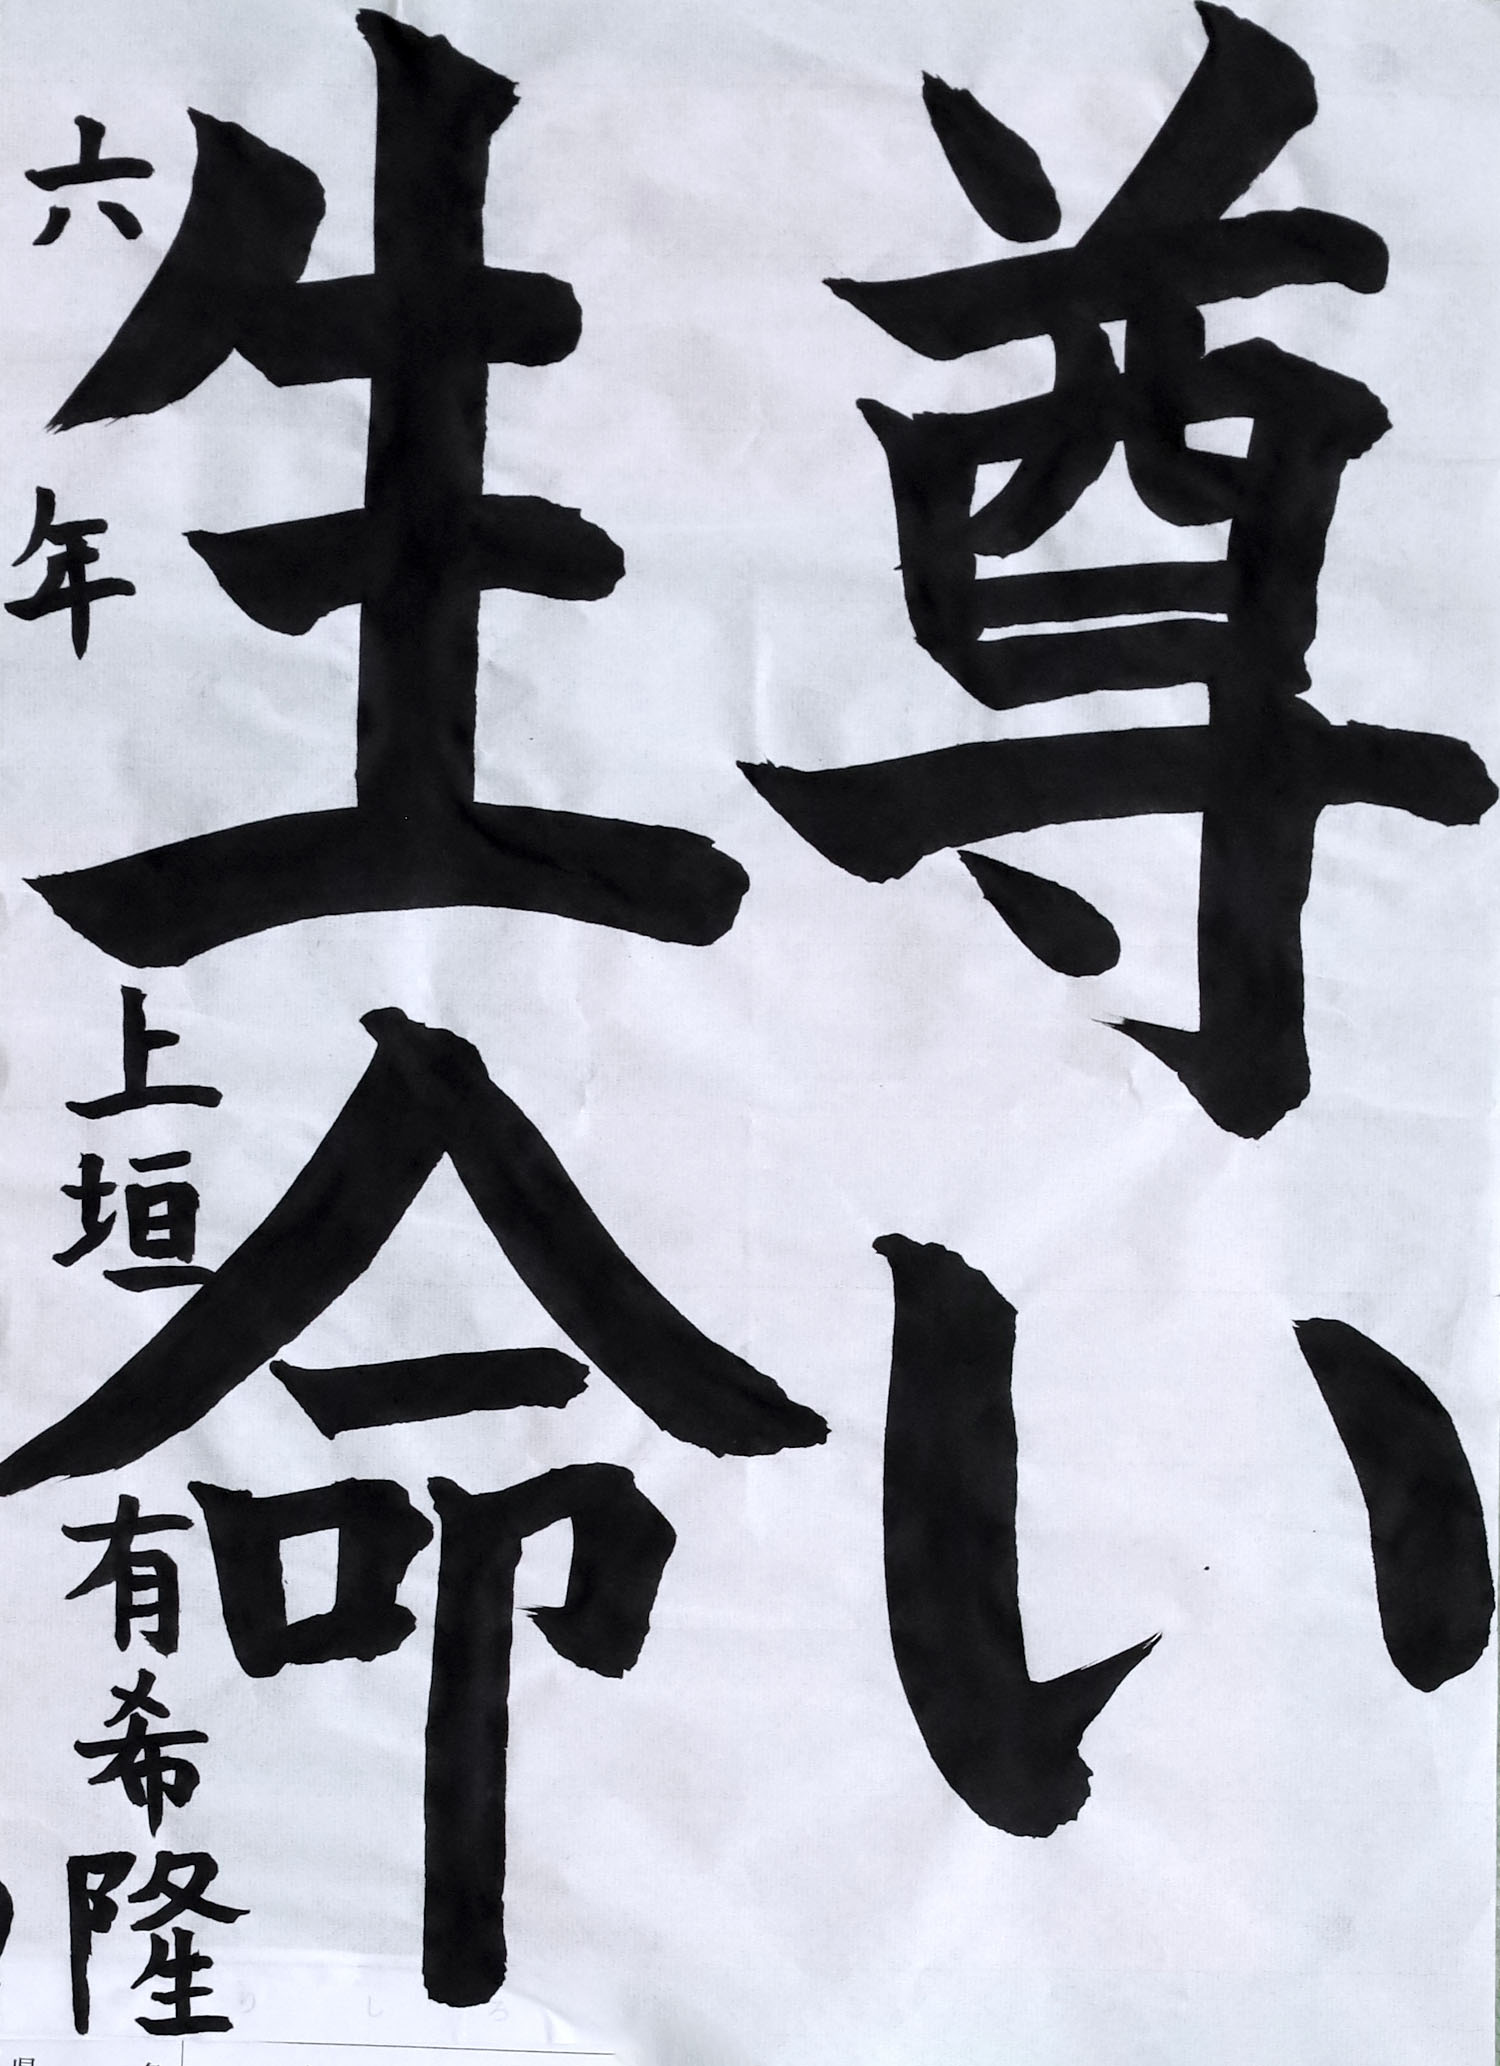 尊い
生命
六年 上垣有希隆